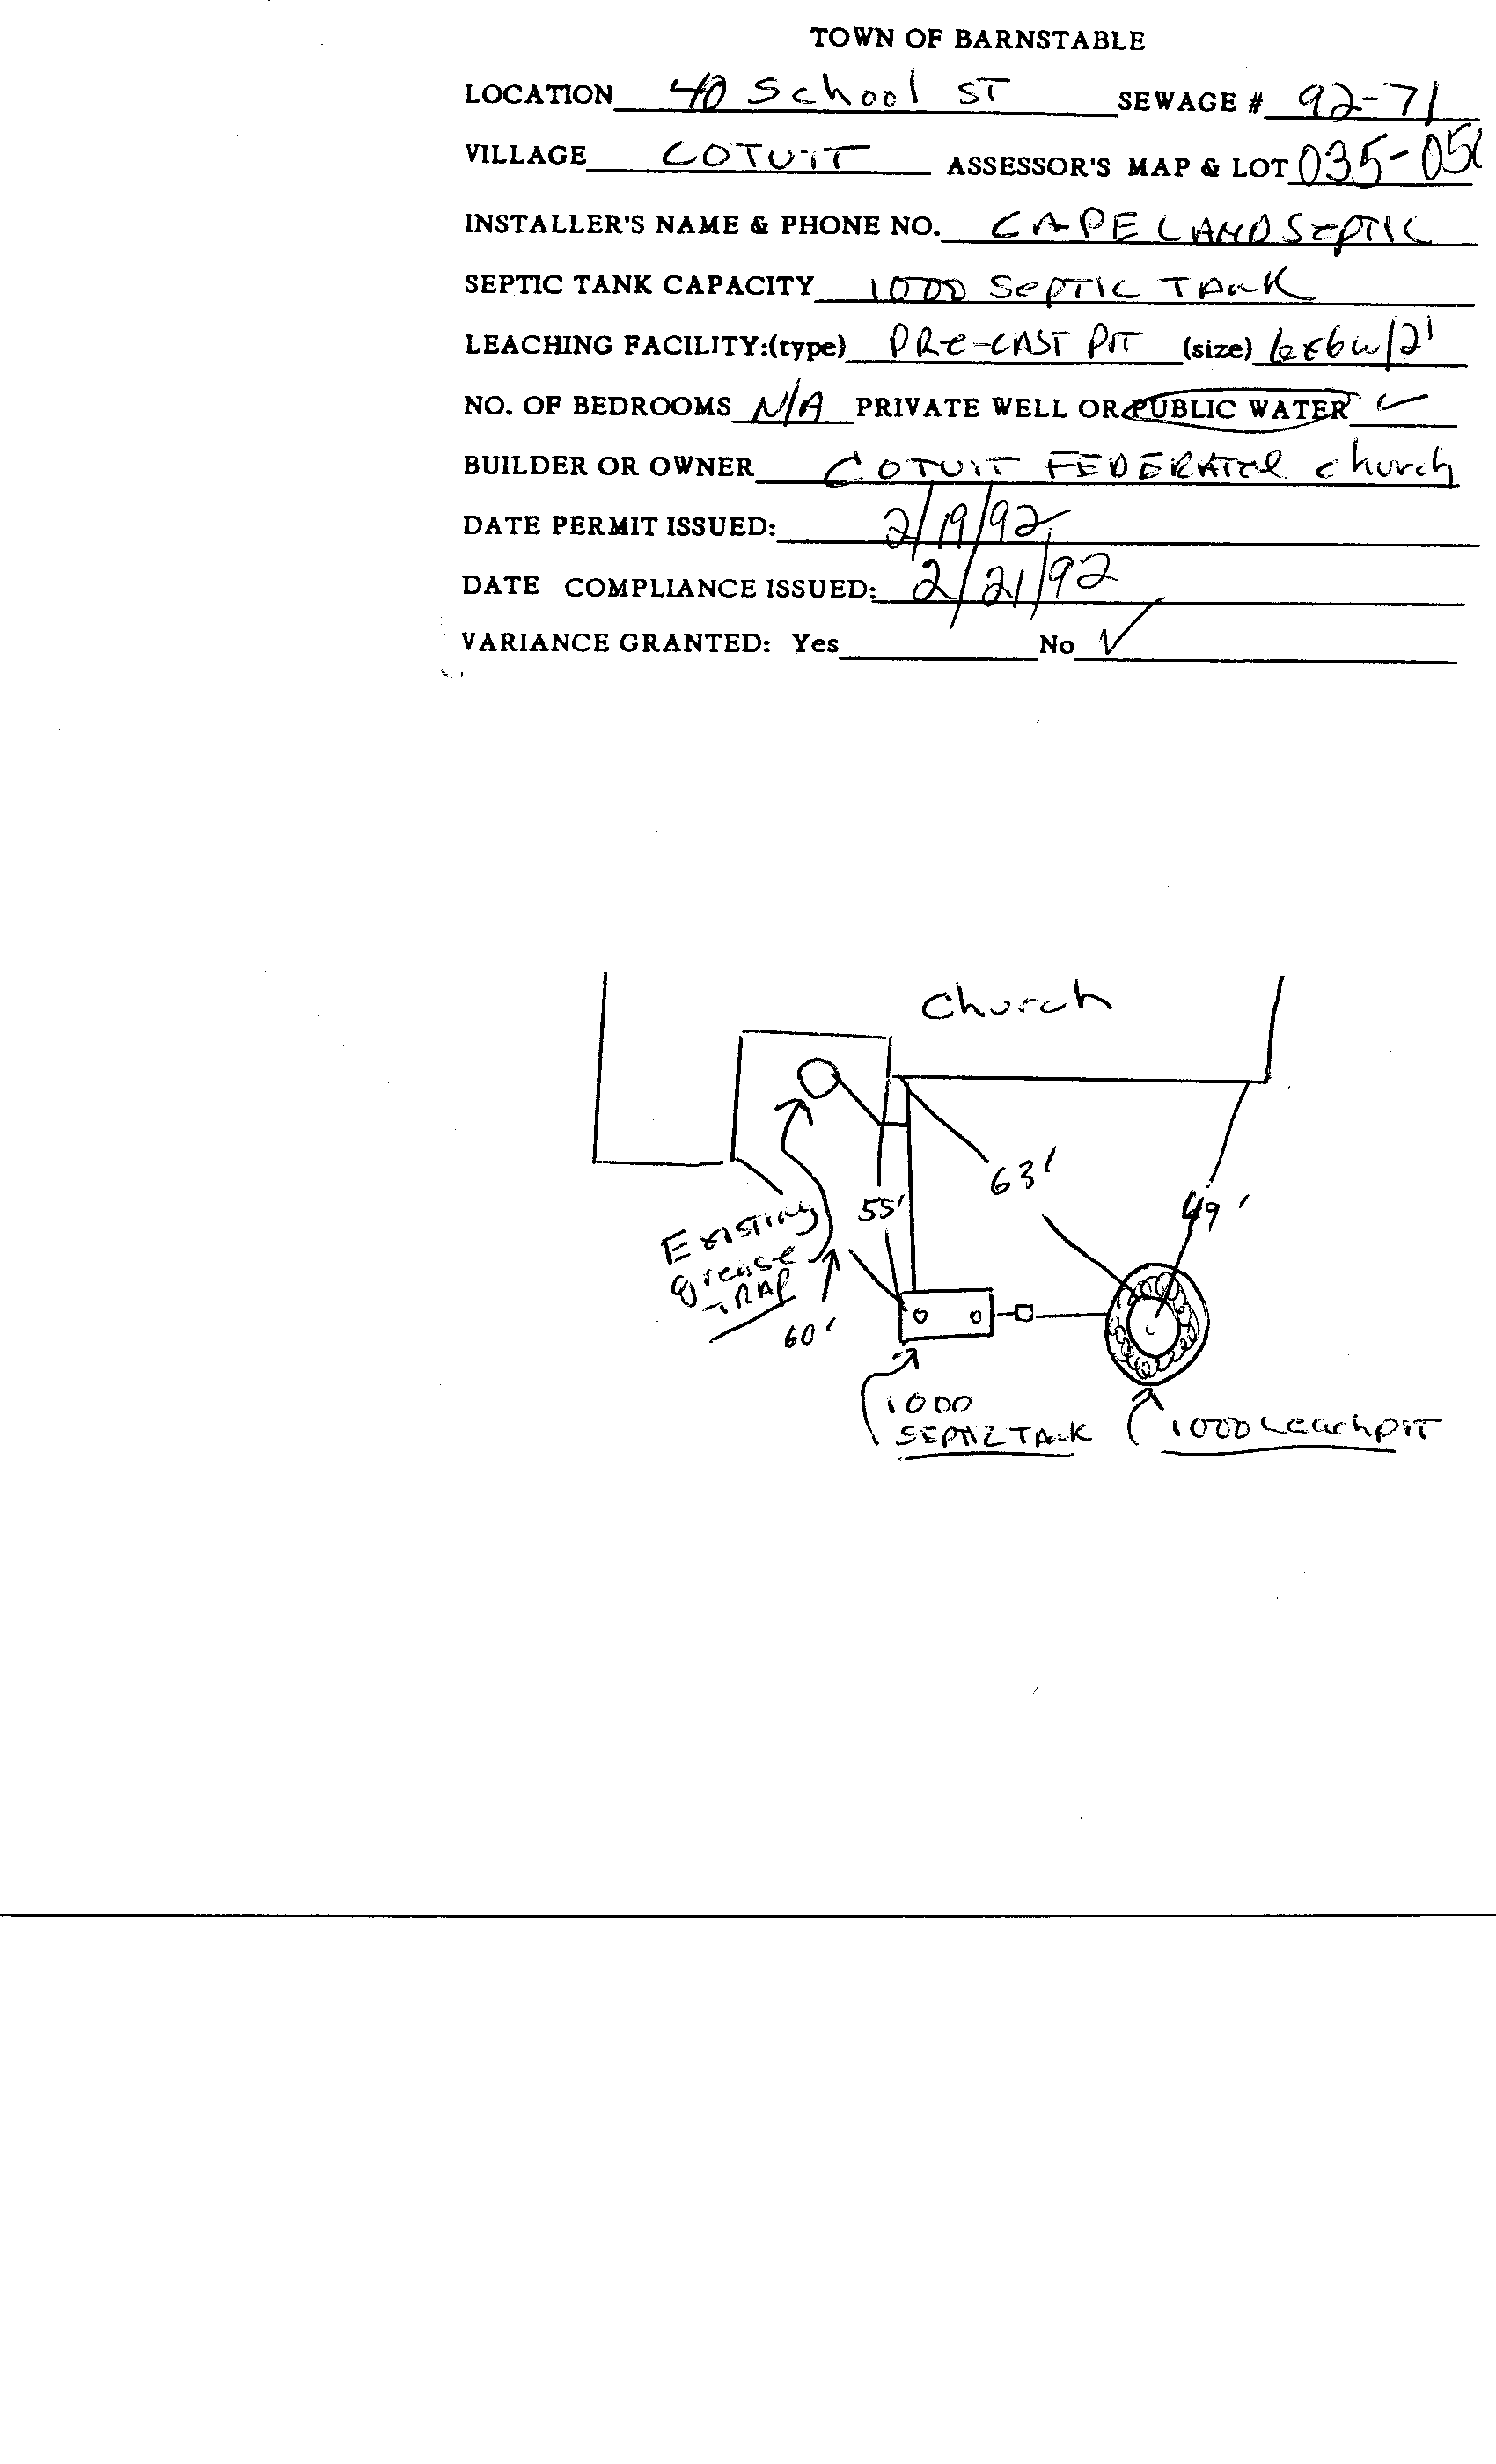 TOWN OF BARNSTABLE
LOCATION 40 School ST SEWAGE # 92-71
VILLAGE COTUIT ASSESSOR'S MAP & LOT 035-05
INSTALLER'S NAME & PHONE NO. CAPELAND SEPTIC
SEPTIC TANK CAPACITY 1000 SEPTIC TANK
LEACHING FACILITY:(type) PRe-CAST PIT (size) 6x6 w/2'
NO. OF BEDROOMS N/A PRIVATE WELL OR PUBLIC WATER ✓
BUILDER OR OWNER COTUIT FEDERATED church
DATE PERMIT ISSUED: 2/19/92
DATE COMPLIANCE ISSUED: 2/21/92
VARIANCE GRANTED: Yes No ✓
Church
63'
55'
49'
Existing
grease
TRAP
60'
1000
SEPTIC TANK
1000 Leachpit